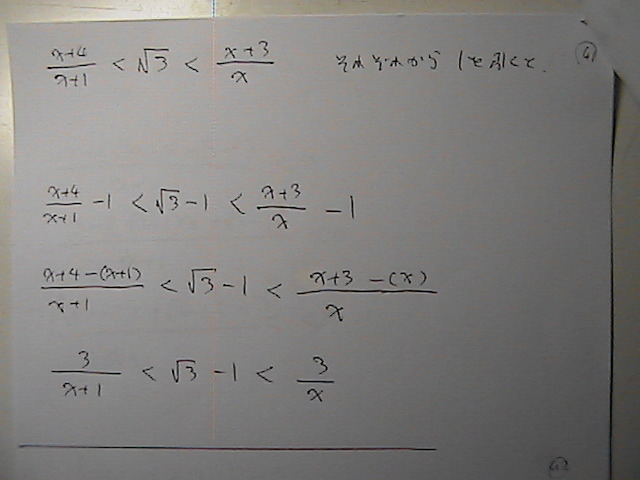 (x+4)/(x+1) < √3 < (x+3)/x それぞれから 1を引くと. ④
(x+4)/(x+1) - 1 < √3 - 1 < (x+3)/x - 1
(x+4-(x+1))/(x+1) < √3 - 1 < (x+3-(x))/x
3/(x+1) < √3 - 1 < 3/x